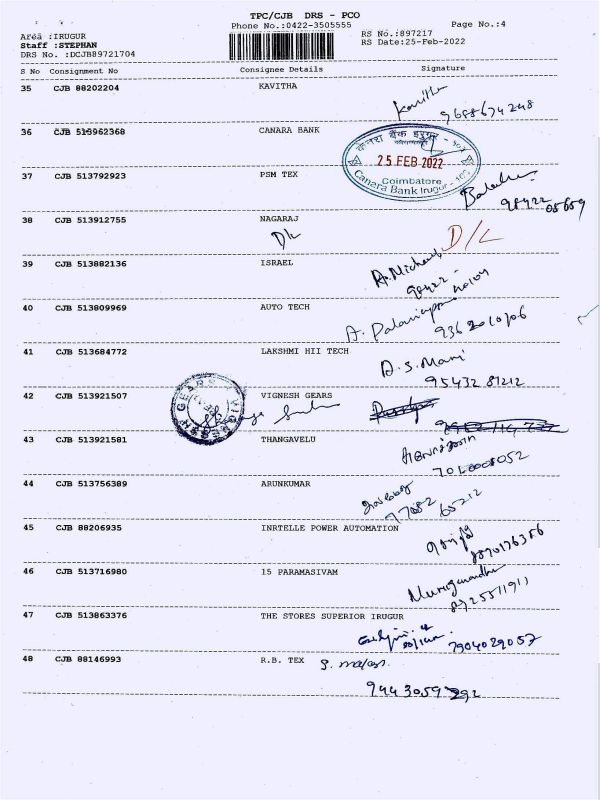 TPC/CJB DRS - PCO
Phone No.:0422-3505555 Page No.:4
Area :IRUGUR RS No.:897217
Staff :STEPHAN RS Date:25-Feb-2022
DRS No. :DCJB89721704
S No Consignment No Consignee Details Signature
35 CJB 88202204 KAVITHA
Kavitha
9688674248
36 CJB 513962368 CANARA BANK
केनरा बैंक इरुगूर
25 FEB 2022
Coimbatore
Canara Bank Irugur
37 CJB 513792923 PSM TEX
98422 05659
38 CJB 513912755 NAGARAJ
D/L D/L
39 CJB 513882136 ISRAEL
A. Michael
98422
40 CJB 513809969 AUTO TECH
A. Palaniappan
9362010706
41 CJB 513684772 LAKSHMI HII TECH
A.S. Mani
95432 81212
42 CJB 513921507 VIGNESH GEARS
43 CJB 513921581 THANGAVELU
44 CJB 513756389 ARUNKUMAR
77082 65212
45 CJB 88206935 INRTELLE POWER AUTOMATION
46 CJB 513716980 15 PARAMASIVAM
47 CJB 513863376 THE STORES SUPERIOR IRUGUR
7904029057
48 CJB 88146993 R.B. TEX
9443059292